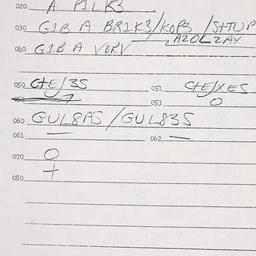 020 A PILK3
030 G1B A BR1K3/KOP3 /SHTUP
A2OL2AX
040 G1B A VORV
050 CHE/3S 051 CHE/XES
052 053 O
060 GUL8AS/GUL83S
061 — 062 —
070 O
080 +